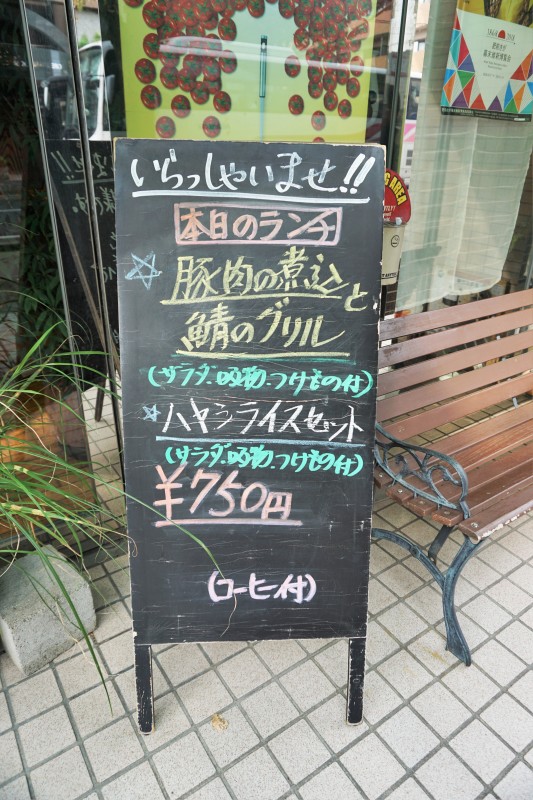 いらっしゃいませ!!
本日のランチ
☆豚肉の煮込と
鯖のグリル
(サラダ.吸物.つけもの付)
☆ハヤシライスセット
(サラダ.吸物.つけもの付)
¥750円
(コーヒー付)